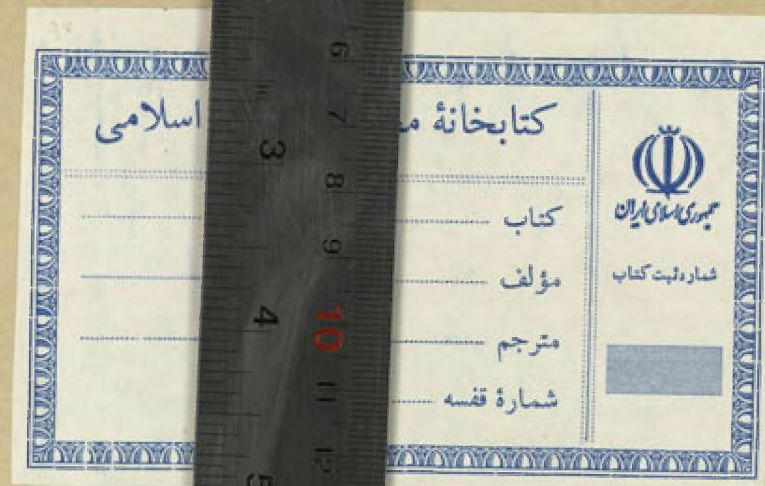 کتابخانهٔ م اسلامی
جمهوری اسلامی ایران
شماره ثبت کتاب
کتاب
مؤلف
مترجم
شمارهٔ قفسه
6
7
8
9
10
11
12
3
4
5